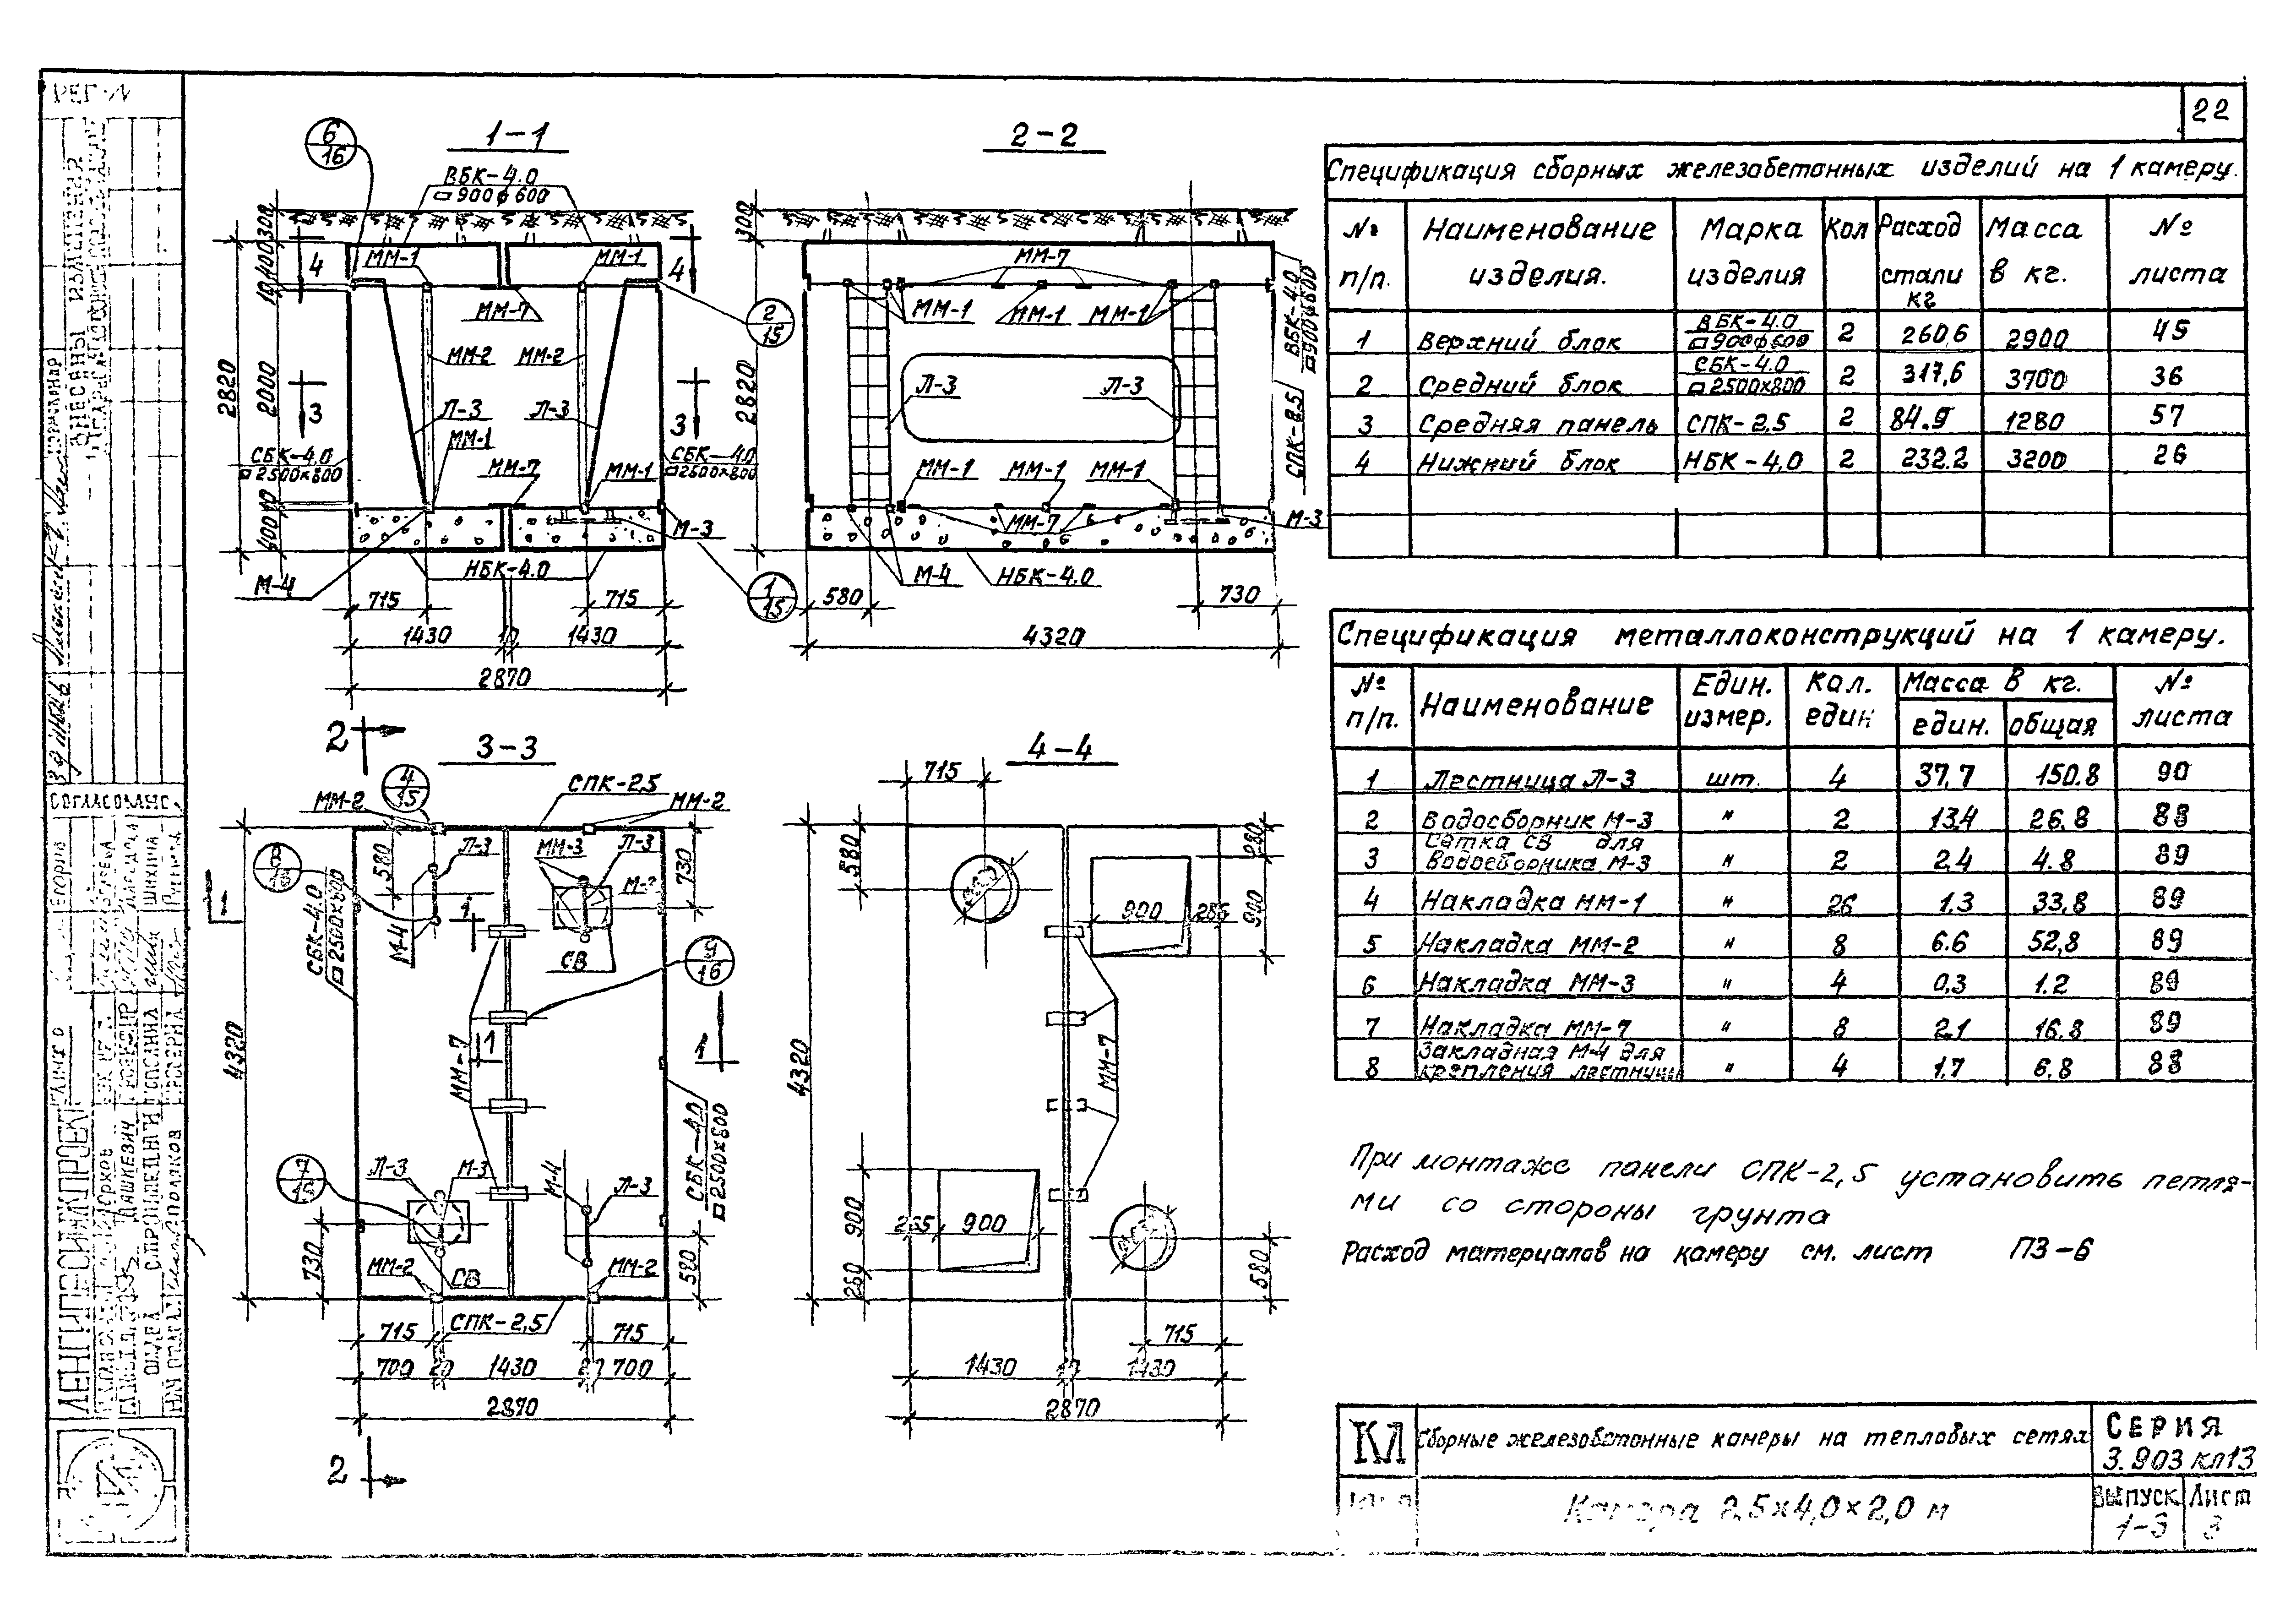 22
1-1
6
16
ВБК-4.0
□900ф600
300
400
10
2820
2000
10
400
4
4
3
3
ММ-1
ММ-1
ММ-7
ММ-2
ММ-2
Л-3
Л-3
ММ-1
ММ-7
ММ-1
СБК-4.0
□2500×800
СБК-4.0
□2500×800
2
15
М-3
М-4
НБК-4.0
1
15
715
715
1430
10
1430
2870
2-2
300
2820
ММ-7
ММ-1
ММ-1
ММ-1
Л-3
Л-3
ММ-1
ММ-1
ММ-1
ММ-7
ВБК-4.0
□900ф600
СПК-2.5
М-3
М-4
НБК-4.0
580
730
4320
2
3-3
4
15
СПК-2,5
ММ-2
ММ-2
8
580
Л-3
ММ-3
Л-3
730
М-4
СВ
1
1
1
9
16
СБК-4.0
□2500×800
4320
ММ-7
СБК-4.0
□2500×800
7
Л-3
М-3
М-4
Л-3
730
580
ММ-2
СВ
ММ-2
СПК-2,5
715
715
700
20
1430
20
700
2870
2
4-4
715
580
280
900
900
4320
ММ-7
900
265
900
260
580
715
1430
10
1430
2870
Спецификация сборных железобетонных изделий на 1 камеру.
№ п/п. Наименование изделия. Марка изделия Кол Расход стали кг Масса в кг. № листа
1 Верхний блок ВБК-4.0 □900ф600 2 260,6 2900 45
2 Средний блок СБК-4.0 □2500×800 2 317,6 3700 36
3 Средняя панель СПК-2,5 2 84.9 1280 57
4 Нижний блок НБК-4,0 2 232.2 3200 26
Спецификация металлоконструкций на 1 камеру.
№ п/п. Наименование Един. измер. Кол. един Масса в кг. един. общая № листа
1 Лестница Л-3 шт. 4 37,7 150.8 90
2 Водосборник М-3 " 2 13,4 26.8 88
3 Сетка СВ для водосборника М-3 " 2 2,4 4.8 89
4 Накладка ММ-1 " 26 1,3 33,8 89
5 Накладка ММ-2 " 8 6.6 52,8 89
6 Накладка ММ-3 " 4 0,3 1.2 89
7 Накладка ММ-7 " 8 2,1 16.8 89
8 Закладная М-4 для крепления лестницы " 4 1,7 6.8 88
При монтаже панели СПК-2,5 установить петля-
ми со стороны грунта
Расход материалов на камеру см. лист ПЗ-6
КЛ
Сборные железобетонные камеры на тепловых сетях
СЕРИЯ
3.903 кл13
Камера 2,5×4,0×2,0 м
Выпуск
1-3
Лист
8
РЕГ.N
ВНЕСЕНЫ ИЗМЕНЕНИЯ
СОГЛАСОВАНО
ЛЕНГИПРОИНЖПРОЕКТ